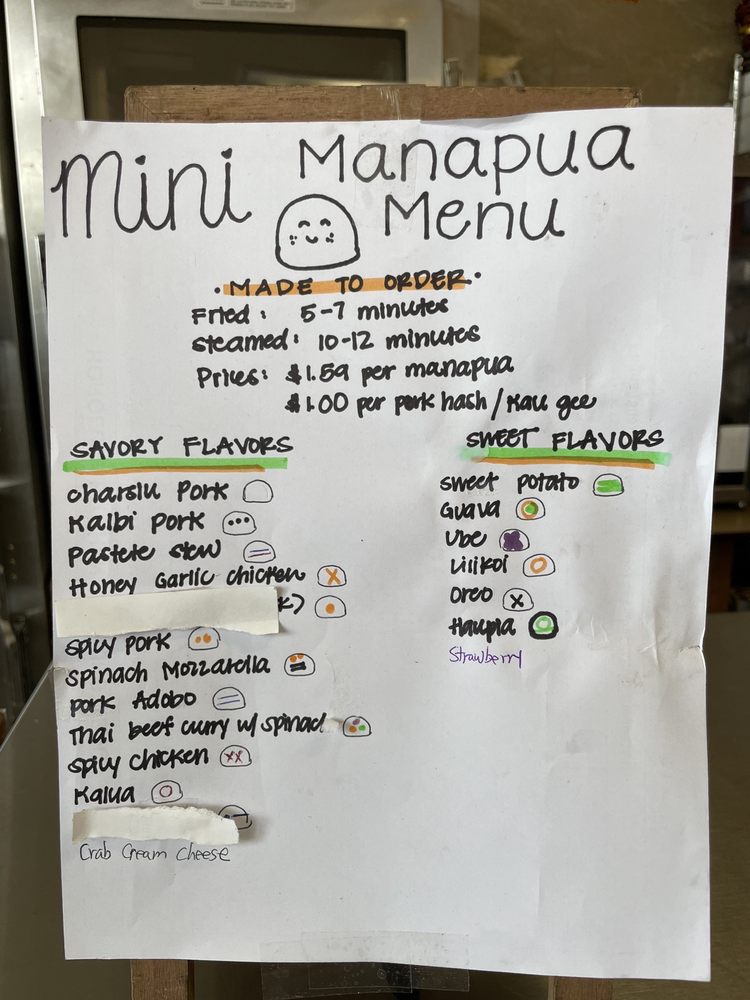 Mini Manapua
Menu
• MADE TO ORDER •
Fried: 5-7 minutes
Steamed: 10-12 minutes
Prices: $1.59 per manapua
$1.00 per pork hash / Kau gee
SAVORY FLAVORS
Charsiu Pork
Kalbi Pork
Pastele stew
Honey Garlic Chicken
k)
Spicy Pork
Spinach Mozzarella
Pork Adobo
Thai beef curry w/ spinac
Spicy Chicken
Kalua
Crab Cream Cheese
SWEET FLAVORS
Sweet Potato
Guava
Ube
Lilikoi
Oreo
Haupia
Strawberry